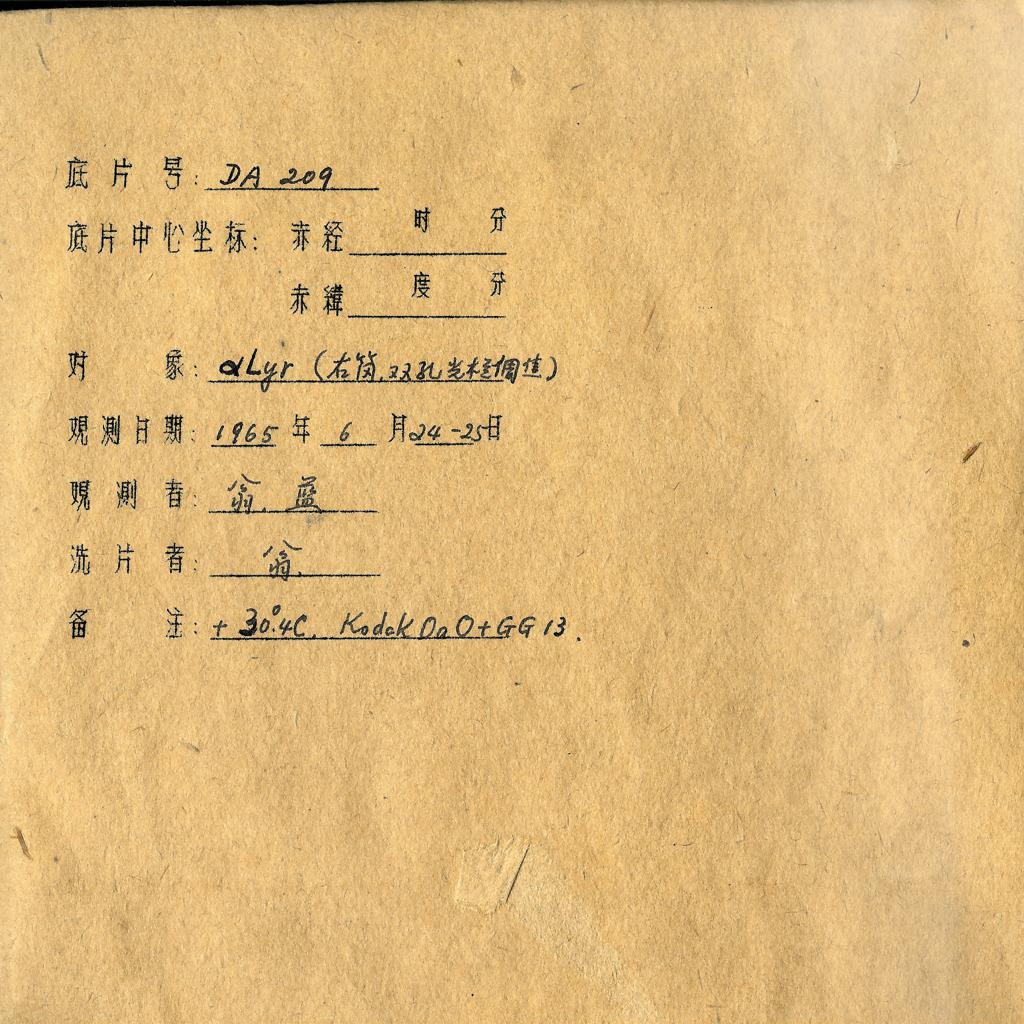 底片号: DA 209
底片中心坐标: 赤经 时 分
赤緯 度 分
对 象: αLyr (右筒,双孔光栏调焦)
观測日期: 1965 年 6 月 24-25日
观測者: 翁.蓝
洗片者: 翁.
备 注: + 30°.4C. Kodak DaO+GG 13.